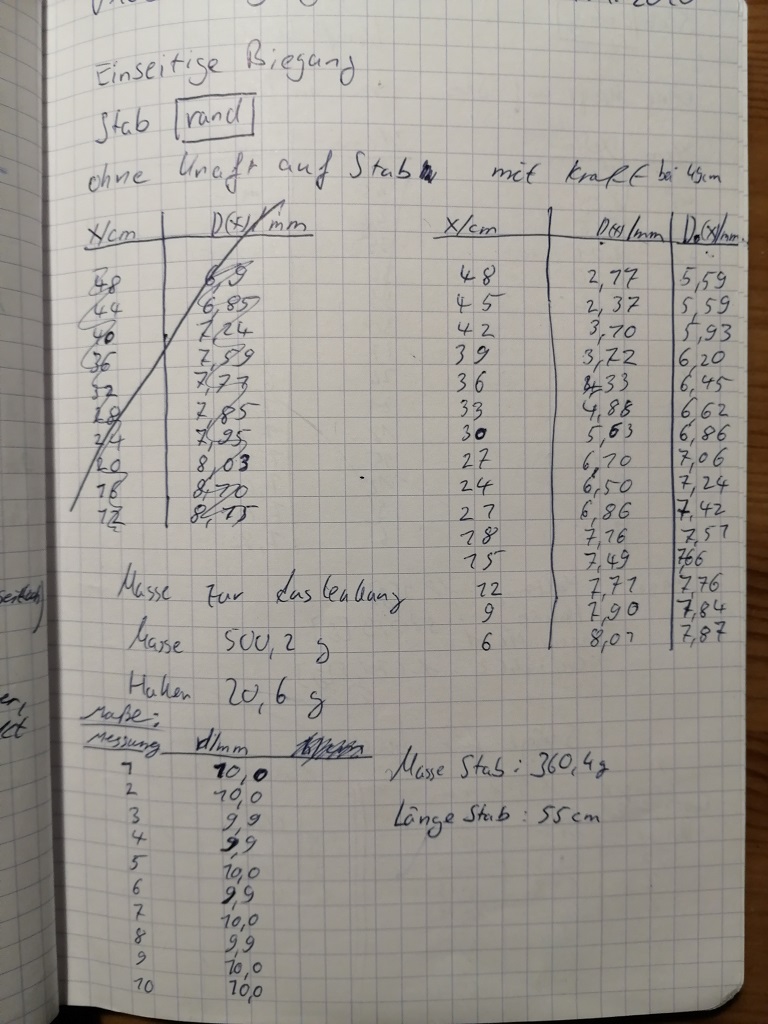 Einseitige Biegung
Stab rund
ohne Kraft auf Stab mit Kraft bei 49cm
x/cm D(x)/mm
48 6,9
44 6,85
40 7,24
36 7,59
32 7,73
28 7,85
24 7,95
20 8,03
16 8,10
12 8,15
x/cm D(x)/mm D₀(x)/mm
48 2,17 5,59
45 2,37 5,59
42 3,10 5,93
39 3,72 6,20
36 4,33 6,45
33 4,88 6,62
30 5,63 6,86
27 6,10 7,06
24 6,50 7,24
21 6,86 7,42
18 7,16 7,51
15 7,49 7,66
12 7,71 7,76
9 7,90 7,84
6 8,01 7,87
Masse zur Auslenkung
Masse 500,2 g
Haken 20,6 g
Maße:
Messung d/mm
1 10,0
2 10,0
3 9,9
4 9,9
5 10,0
6 9,9
7 10,0
8 9,9
9 10,0
10 10,0
Masse Stab: 360,4g
Länge Stab: 55cm